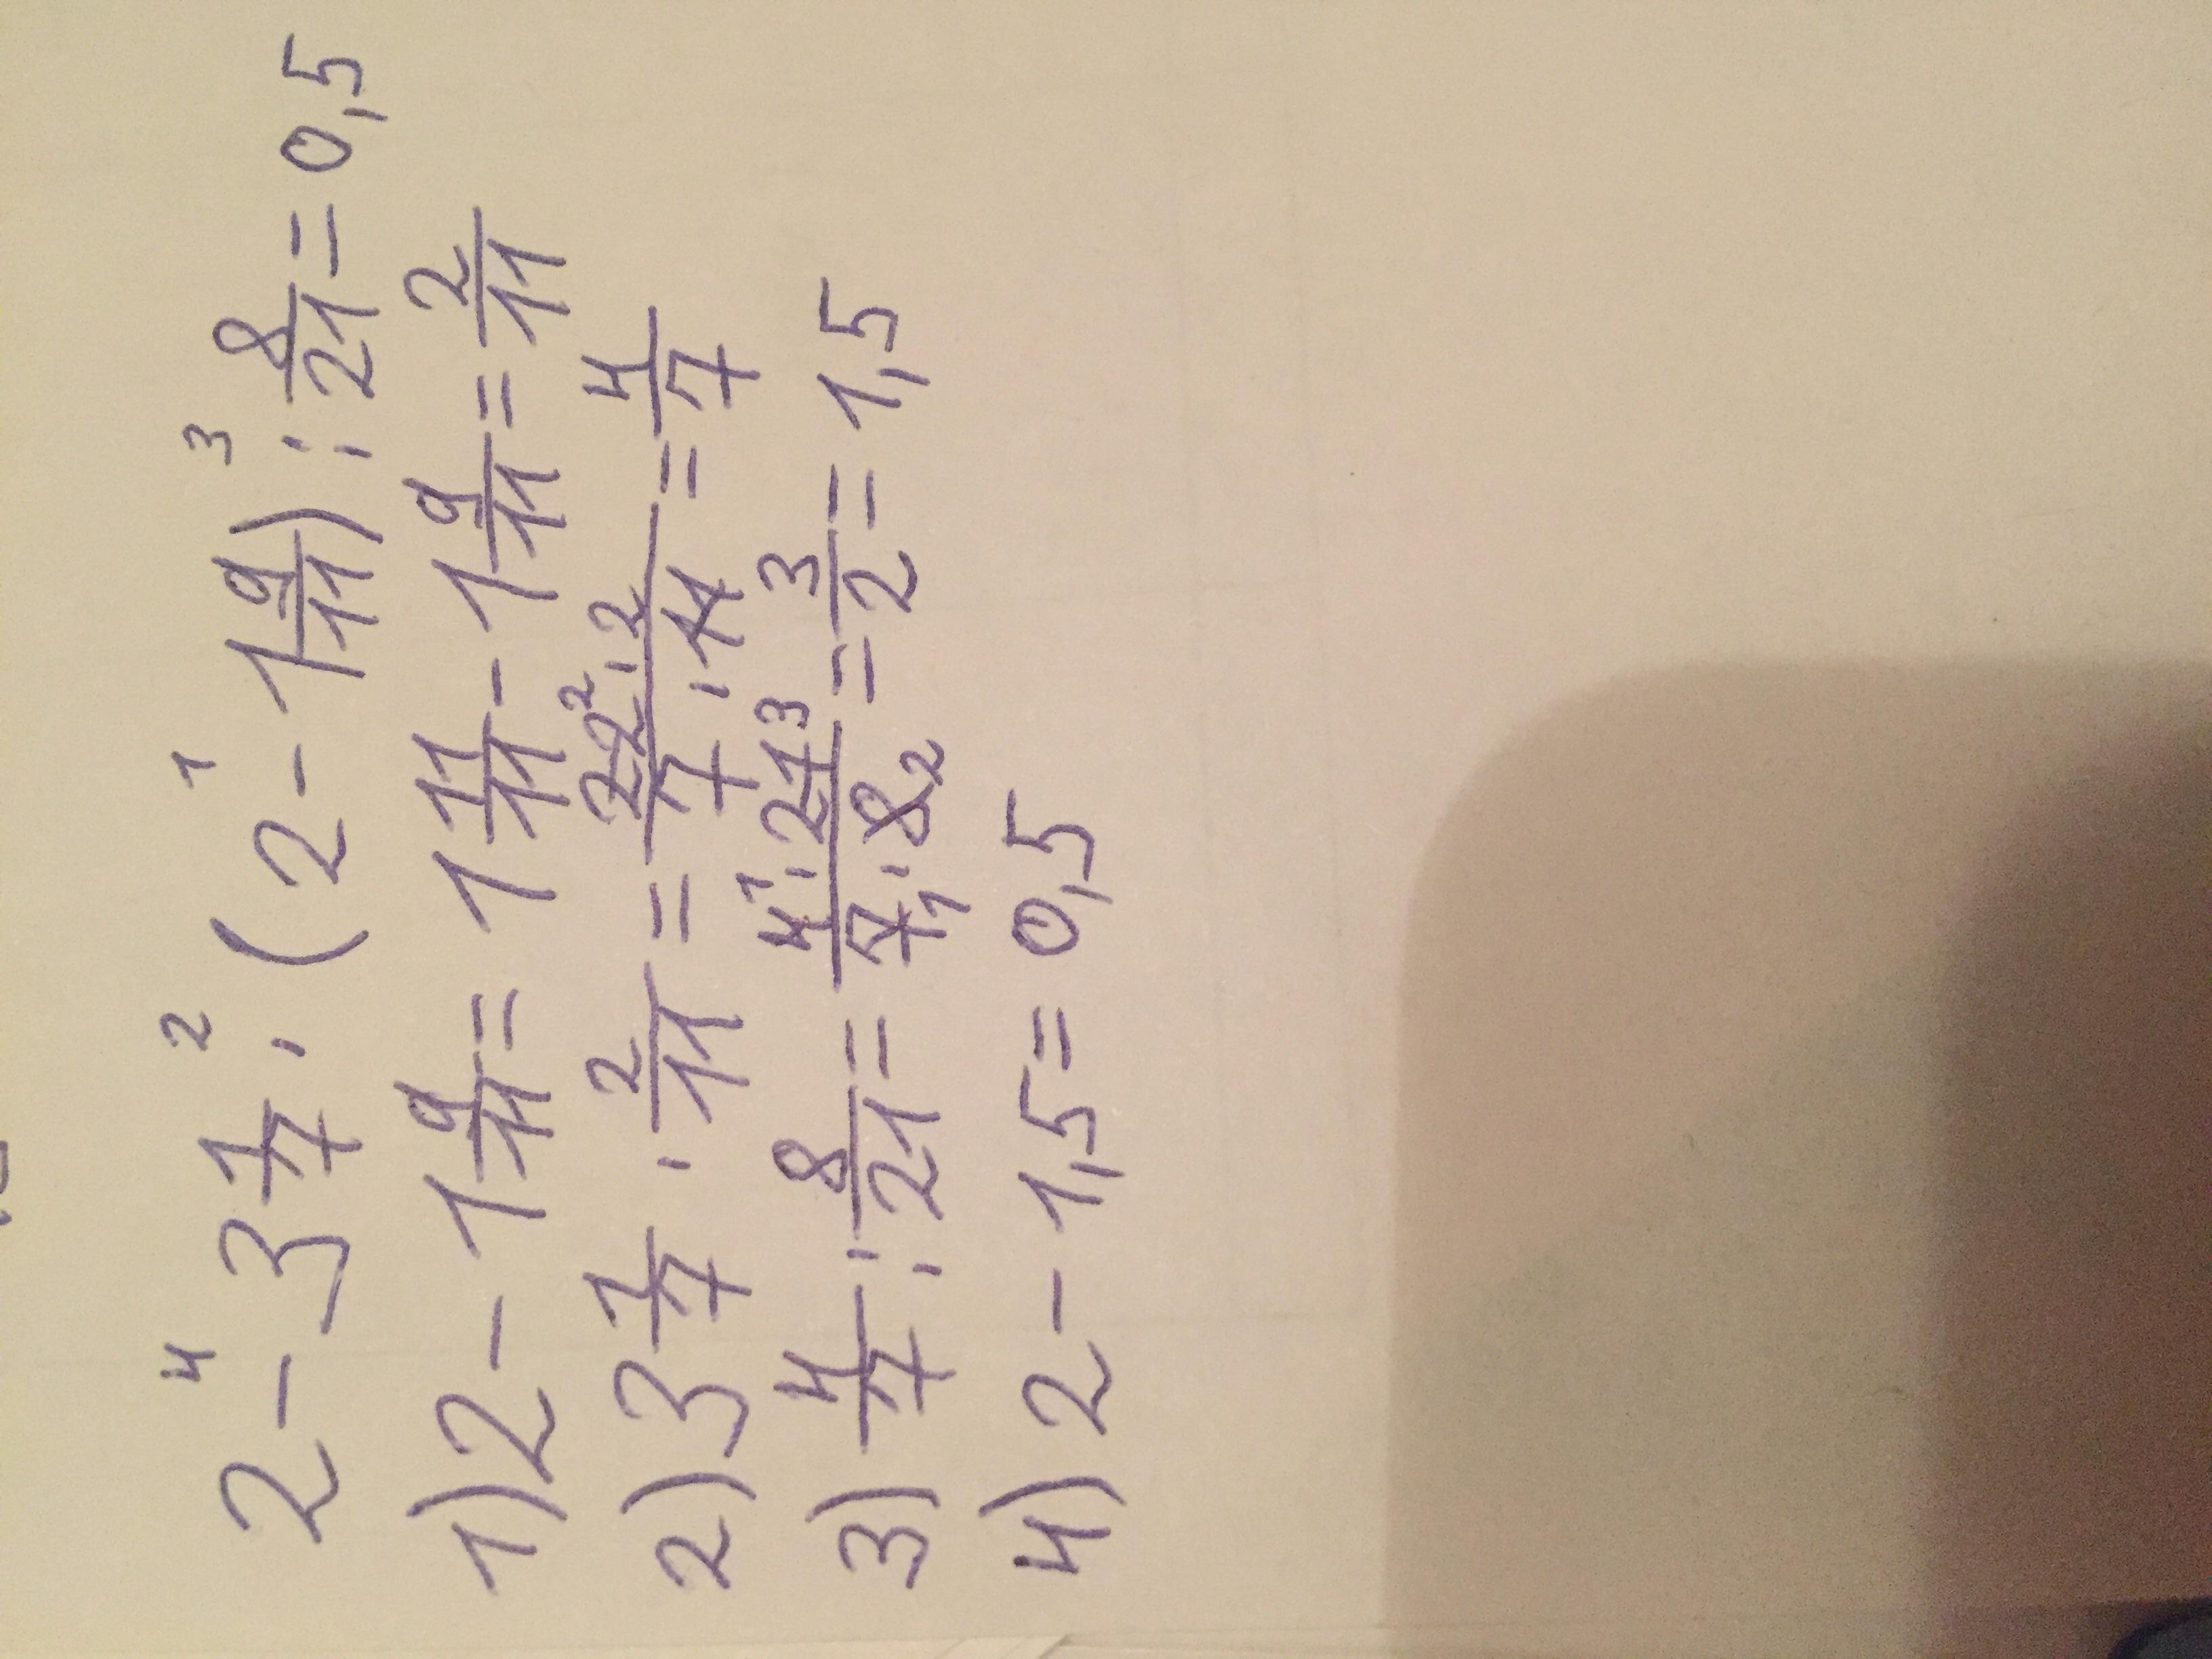 2 - 3 1/7 · (2 - 1 9/11) : 8/21 = 0,5
1) 2 - 1 9/11 = 1 11/11 - 1 9/11 = 2/11
2) 3 1/7 · 2/11 = 22 · 2 / 7 · 11 = 4/7
3) 4/7 : 8/21 = 4 · 21 / 7 · 8 = 3/2 = 1,5
4) 2 - 1,5 = 0,5